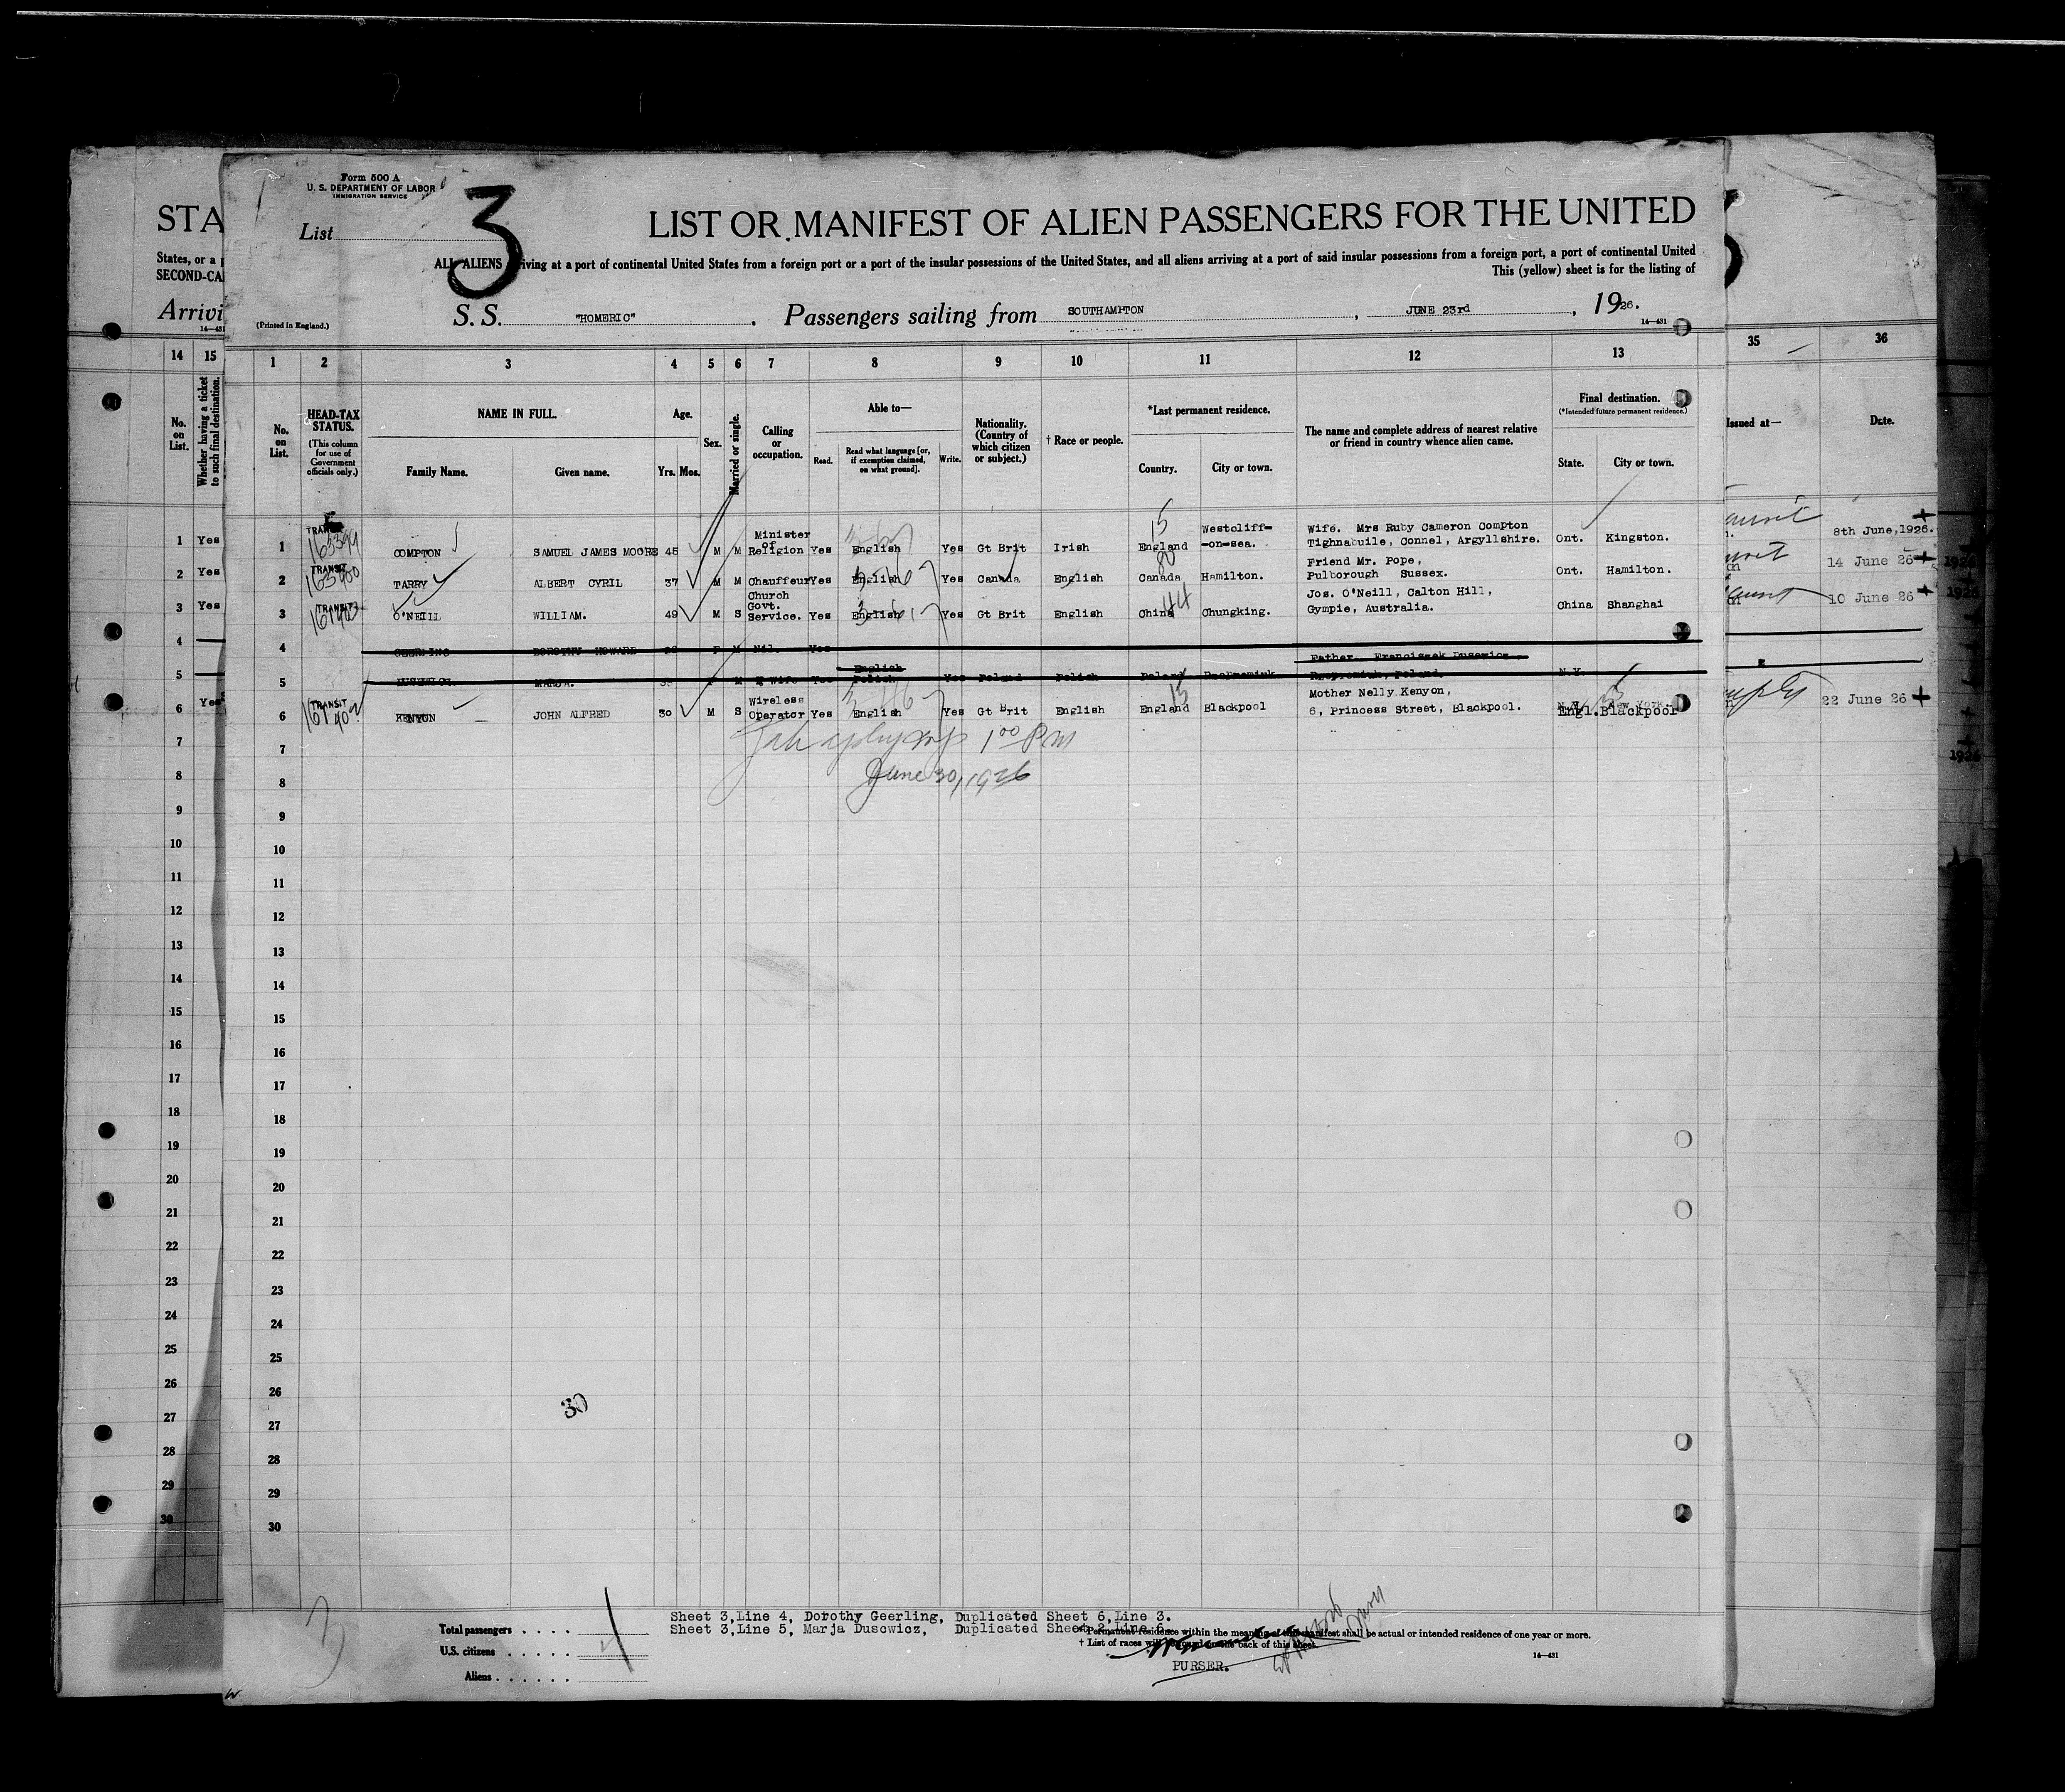 Form 500 A
U. S. DEPARTMENT OF LABOR
IMMIGRATION SERVICE
List 3
STA
LIST OR MANIFEST OF ALIEN PASSENGERS FOR THE UNITED
States, or a
SECOND-CA
ALL ALIENS arriving at a port of continental United States from a foreign port or a port of the insular possessions of the United States, and all aliens arriving at a port of said insular possessions from a foreign port, a port of continental United
This (yellow) sheet is for the listing of
Arrivi
(Printed in England.)
S. S. "HOMERIC" , Passengers sailing from SOUTHAMPTON , JUNE 23rd , 1926.
14—431
14 15 1 2 3 4 5 6 7 8 9 10 11 12 13 35 36
No. on List.
Whether having a ticket to such final destination.
No. on List.
HEAD-TAX STATUS.
(This column for use of Government officials only.)
NAME IN FULL.
Family Name. Given name.
Age.
Yrs. Mos.
Sex.
Married or single.
Calling or occupation.
Able to—
Read. Read what language [or, if exemption claimed, on what ground]. Write.
Nationality. (Country of which citizen or subject.)
† Race or people.
*Last permanent residence.
Country. City or town.
The name and complete address of nearest relative or friend in country whence alien came.
Final destination.
(*Intended future permanent residence.)
State. City or town.
Issued at—
Date.
1 Yes 1 TRANSIT 163399 COMPTON SAMUEL JAMES MOORE 45 M M Minister of Religion Yes English Yes Gt Brit Irish 15 England Westcliff-on-sea. Wife. Mrs Ruby Cameron Compton Tighnabuile, Connel, Argyllshire. Ont. Kingston. 8th June, 1926.
2 Yes 2 TRANSIT 163400 TARRY ALBERT CYRIL 37 M M Chauffeur Yes English Yes Canada English 80 Canada Hamilton. Friend Mr. Pope, Pulborough Sussex. Ont. Hamilton. 14 June 26
3 Yes 3 TRANSIT O'NEILL WILLIAM. 49 M S Church Govt. Service. Yes English Yes Gt Brit English 44 China Chungking. Jos. O'Neill, Calton Hill, Gympie, Australia. China Shanghai 10 June 26
4 4 GEERLING DOROTHY HOWARD F M Nil. Yes
5 5 MARJA. M Wife Yes English Polish Yes Poland Polish Poland Father. Franciszek Dusowicz Poland. N.Y.
6 Yes 6 TRANSIT KENYON JOHN ALFRED 30 M S Wireless Operator Yes English Yes Gt Brit English 15 England Blackpool Mother Nelly Kenyon, 6, Princess Street, Blackpool. Engl. Blackpool 22 June 26
7 7 1 00 PM
8 8 June 30, 1926
9 9
10 10
11 11
12 12
13 13
14 14
15 15
16 16
17 17
18 18
19 19
20 20
21 21
22 22
23 23
24 24
25 25
26 26
30
27 27
28 28
29 29
30 30
Total passengers
U.S. citizens
Aliens
Sheet 3,Line 4, Dorothy Geerling, Duplicated Sheet 6,Line 3.
Sheet 3,Line 5, Marja Dusowicz, Duplicated Sheet 2,Line 6.
*Permanent residence within the meaning of this manifest shall be actual or intended residence of one year or more.
† List of races will be found on the back of this sheet.
PURSER.
14—431